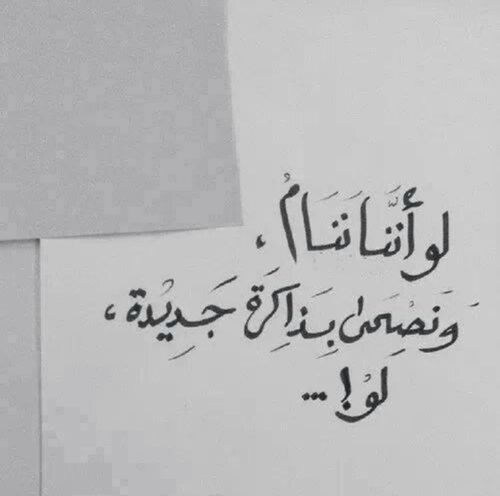 لو أنَّنا نَنَامُ ،
وَنَصْحَى بِذَاكِرَة جَدِيْدة ،
لوْ ! ...